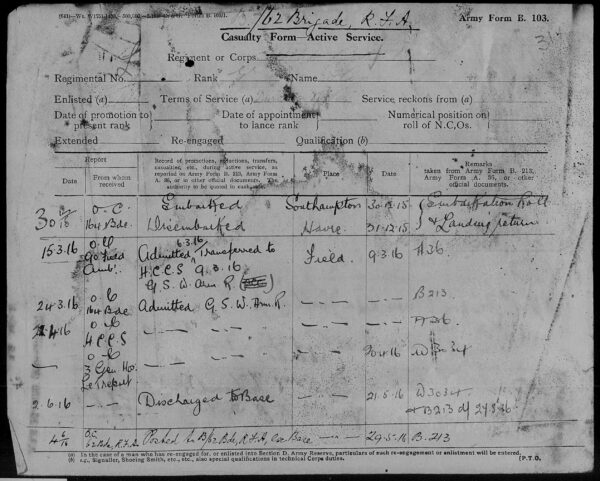 162 Brigade, R.F.A.
Army Form B. 103.
Casualty Form—Active Service.
Regiment or Corps
Regimental No. Rank Name
Enlisted (a) Terms of Service (a) Service reckons from (a)
Date of promotion to present rank Date of appointment to lance rank Numerical position on roll of N.C.Os.
Extended Re-engaged Qualification (b)
Report
Date From whom received
Record of promotions, reductions, transfers, casualties, etc., during active service, as reported on Army Form B. 213, Army Form A. 36, or in other official documents. The authority to be quoted in each case.
Place
Date
Remarks
taken from Army Form B. 213, Army Form A. 36, or other official documents.
O.C. Embarked Southampton 30.12.15 Embarkation Roll
164 Bde. Disembarked Havre 31.12.15 & Landing return
15.3.16 Admitted 6.3.16 Transferred to Field. 9.3.16 A36
Amb. H.C.C.S 9.3.16
G.S.W. Arm R.
24.3.16 O.C. 164 Bde Admitted G.S.W. Arm R. B213
4.16 O.C. HCCS A36
O.C. 3 Gen Ho. 30.4.16 W3034
2.6.16 Discharged to Base 21.5.16 W3034
& B213
Posted to Base 29.5.16 B.213
(a) In the case of a man who has re-engaged for, or enlisted into Section D. Army Reserve, particulars of such re-engagement or enlistment will be entered.
(b) e.g., Signaller, Shoeing Smith, etc., etc., also special qualifications in technical Corps duties. [P.T.O.